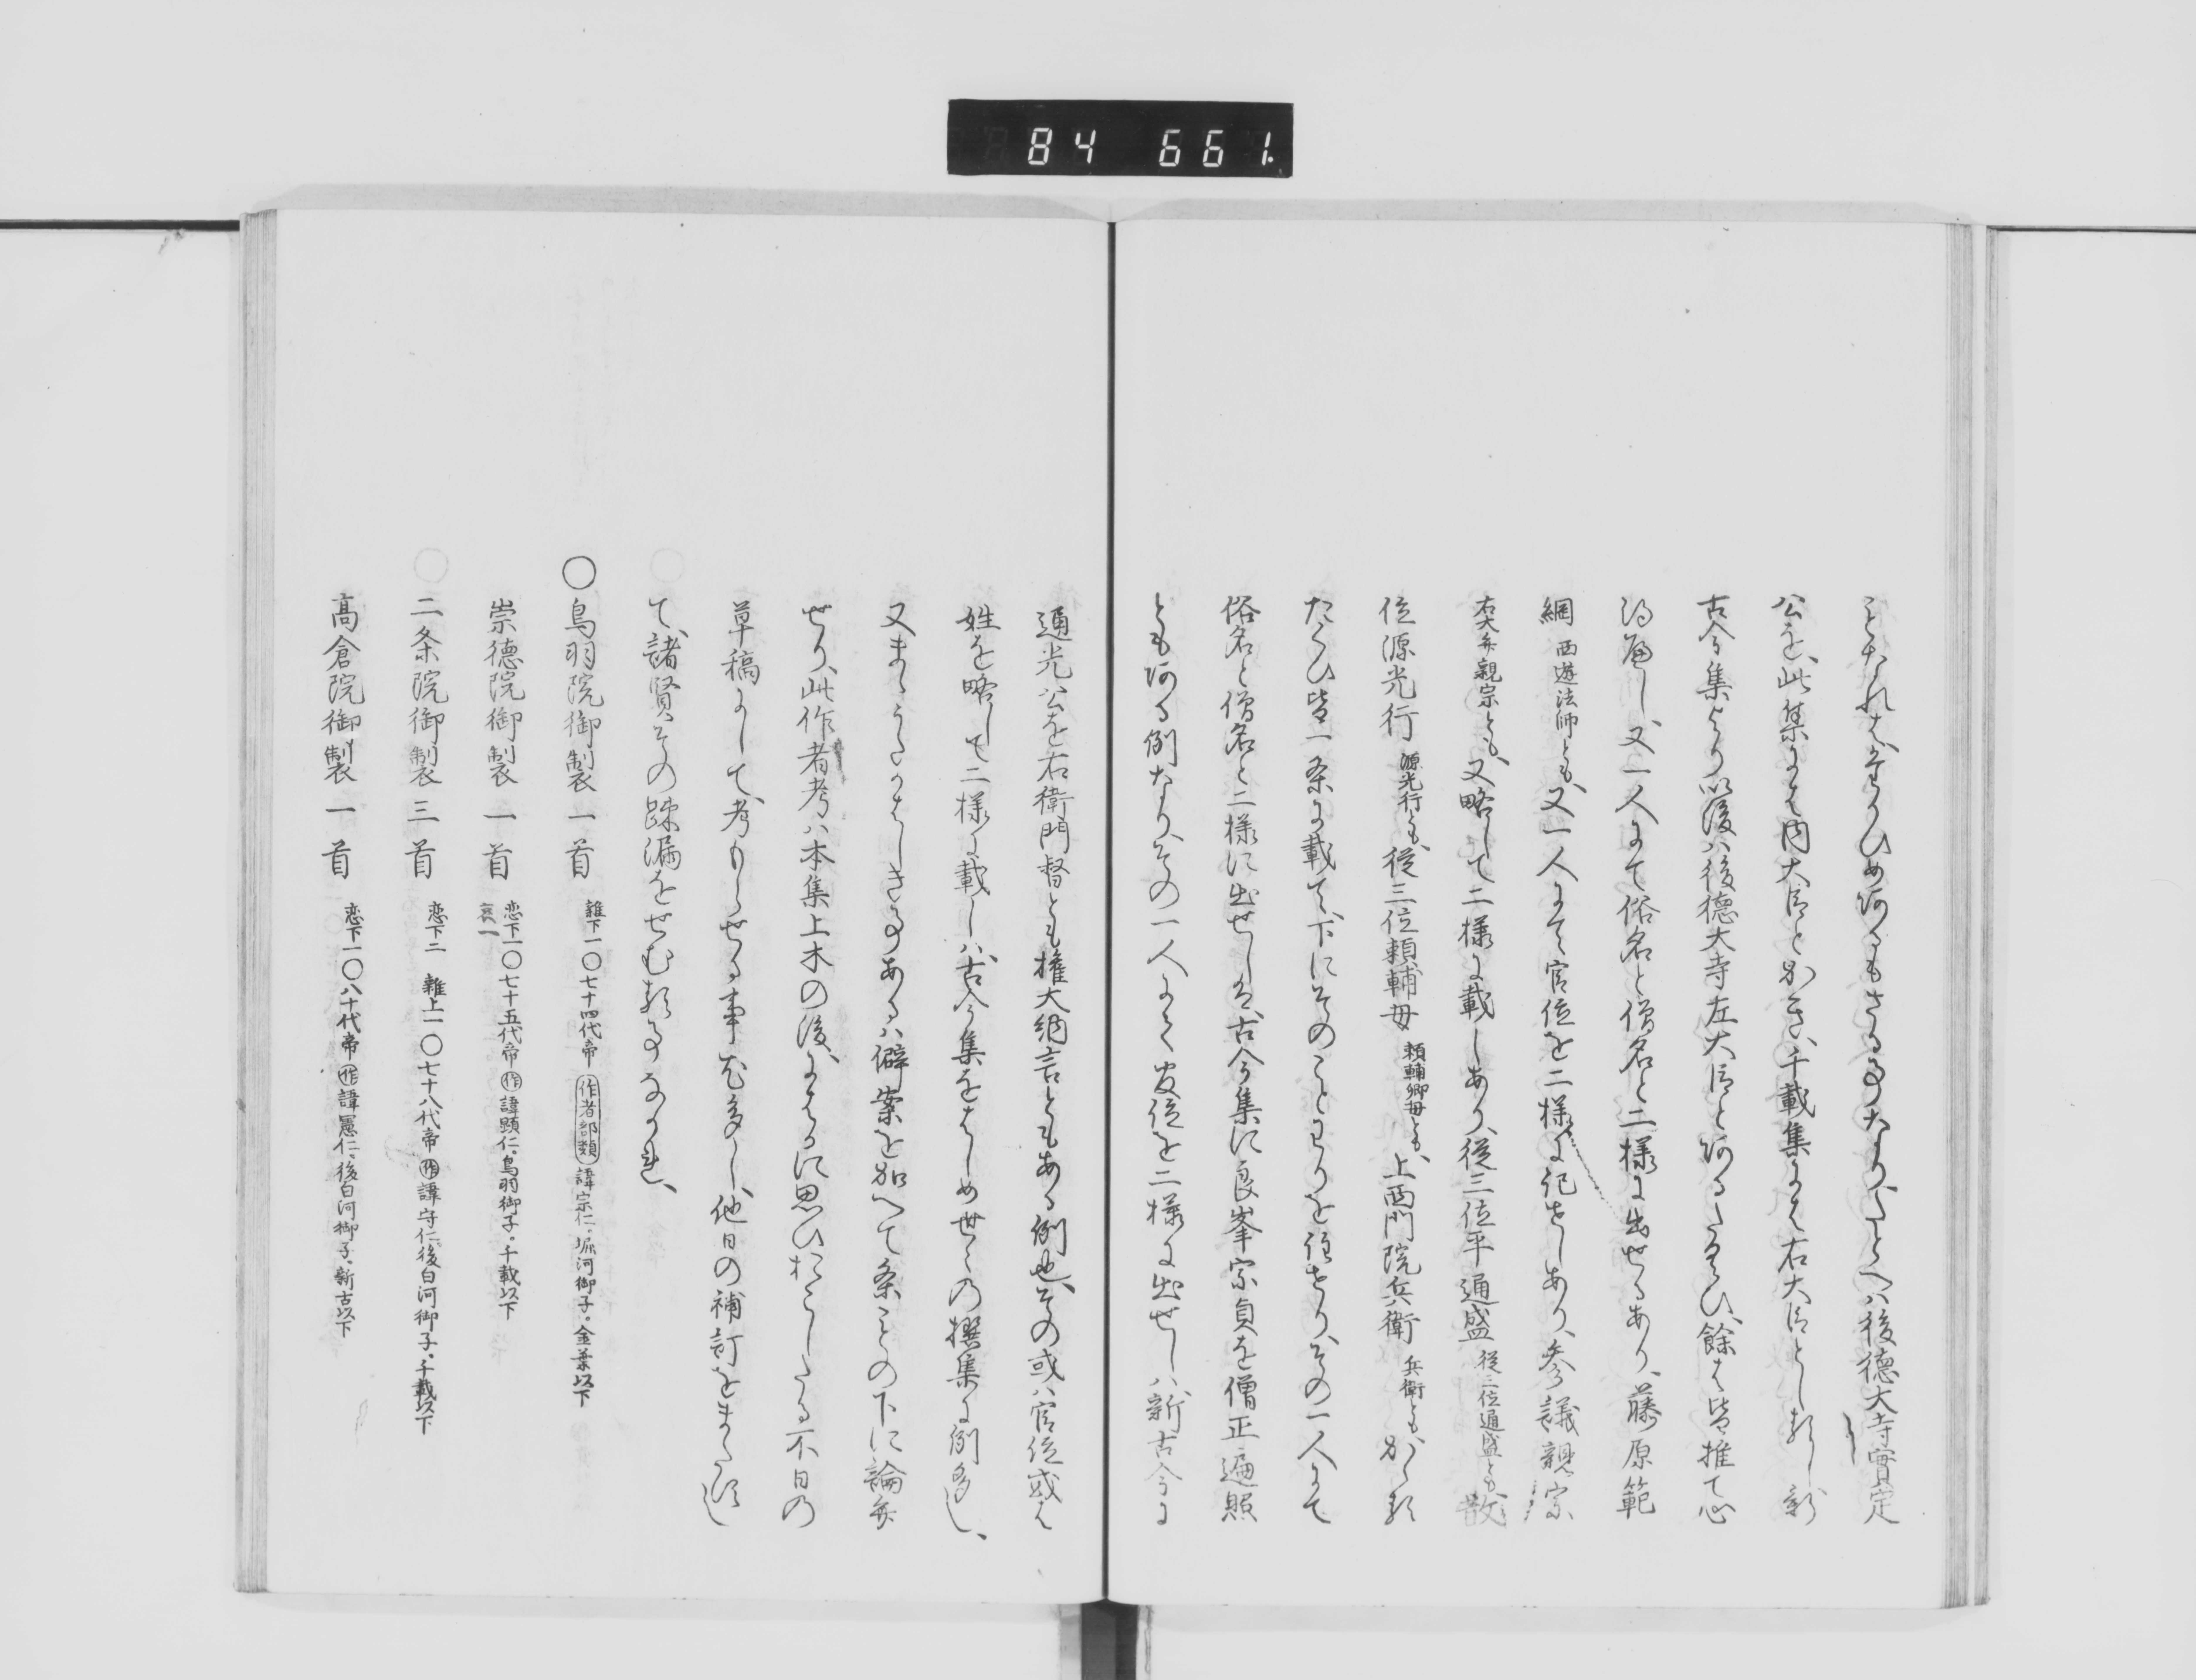 84 661.
公を、此集には内大臣とかき、千載集には右大臣としるし、新
古今集より以後ハ後徳大寺左大臣とあるたぐひ、餘は皆推て心
得べし、又一人にて俗名と僧名と二様に出せるあり、藤原範
綱 西遊法師とも、又一人にて官位を二様に記せしあり、参議親宗
右大弁親宗とも、又略して二様に載しあり、従三位平通盛 従三位通盛とも、散
位源光行 源光行とも、従三位頼輔母 頼輔卿母とも、上西門院兵衛 兵衛とも、かゝる
たぐひ皆一条に載て、下にそのことわりを注せり、その一人にて
俗名と僧名と二様に出せしは、古今集に良峯宗貞を僧正遍照
ともある例なり、その一人にて官位を二様に出せしハ、新古今に
通光公を右衛門督とも権大納言ともある例也、その或ハ官位或は
姓を略して二様に載しハ、古今集をはじめ世々の撰集に例多し、
又まゝうたがはしき事あるハ僻案を加へて条ごとの下に論弁
せり、此作者考ハ本集上木の後、にはかに思ひおこしたる不日の
草稿にして、考もらせる事尤多し、他日の補訂をまつべし
て、諸賢その踈漏をせむる事なかれ、
○鳥羽院御製 一首 雑下一○七十四代帝 作者部類 諱宗仁。堀河御子。金葉以下
崇徳院御製 一首 恋下一○七十五代帝 作 諱顕仁。鳥羽御子。千載以下
哀一
二条院御製 三首 恋下二 雑上一○七十八代帝 作 諱守仁。後白河御子。千載以下
高倉院御製 一首 恋下一○八十代帝 作 諱憲仁。後白河御子。新古以下